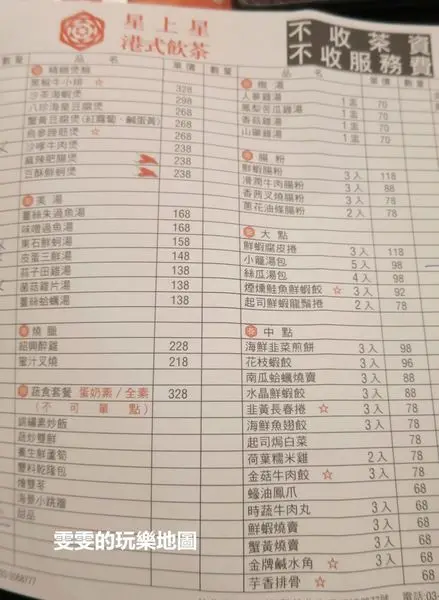 星上星
港式飲茶
不收茶資
不收服務費
數量 品名 單價 數量
品名 單價 數量
精緻煲類
黑椒牛小排 ☆ 328
沙茶海蝦煲 298
八珍海皇豆腐煲 268
蟹黃豆腐煲(紅蘿蔔、鹹蛋黃) 268
魚蔘蹄筋煲 ☆ 268
沙嗲牛肉煲 238
麻辣肥腸煲 238
豆酥鮮蚵煲 238
羹湯
薑絲朱過魚湯 168
味噌過魚湯 168
東石鮮蚵湯 158
皮蛋三鮮湯 148
蒜子田雞湯 138
菌菇雞片湯 138
薑絲蛤蠣湯 138
燒臘
紹興醉雞 228
蜜汁叉燒 218
蔬食套餐 蛋奶素/全素 328
(不可單點)
錦繡素炒飯
蔬炒雙鮮
養生鮮蘆筍
豐料乾隆包
燴雙茗
海景小跳雞
甜品
燉湯
人蔘雞湯 1盅 70
鳳梨苦瓜雞湯 1盅 70
香菇雞湯 1盅 70
山藥雞湯 1盅 70
腸粉
鮮蝦腸粉 3入 118
滑潤牛肉腸粉 3入 88
香茜叉燒腸粉 3入 78
蔥花油條腸粉 2入 78
大點
鮮蝦腐皮捲 3入 118
小龍湯包 5入 98
絲瓜湯包 4入 98
煙燻鮭魚鮮蝦餃 ☆ 3入 92
起司鮮蝦龍鬚捲 2入 78
中點
海鮮韭菜煎餅 3入 98
花枝蝦餃 3入 96
南瓜蛤蠣燒賣 3入 88
水晶鮮蝦餃 3入 88
韭黃長春捲 ☆ 3入 78
海鮮魚翅餃 3入 78
起司焗白菜 78
荷葉糯米雞 2入 78
金菇牛肉餃 ☆ 3入 78
蠔油鳳爪 68
時蔬牛肉丸 3入 68
鮮蝦燒賣 3入 68
蟹黃燒賣 3入 68
金牌鹹水角 ☆ 3入 68
芋香排骨 ☆ 68
雯雯的玩樂地圖
電話:03-